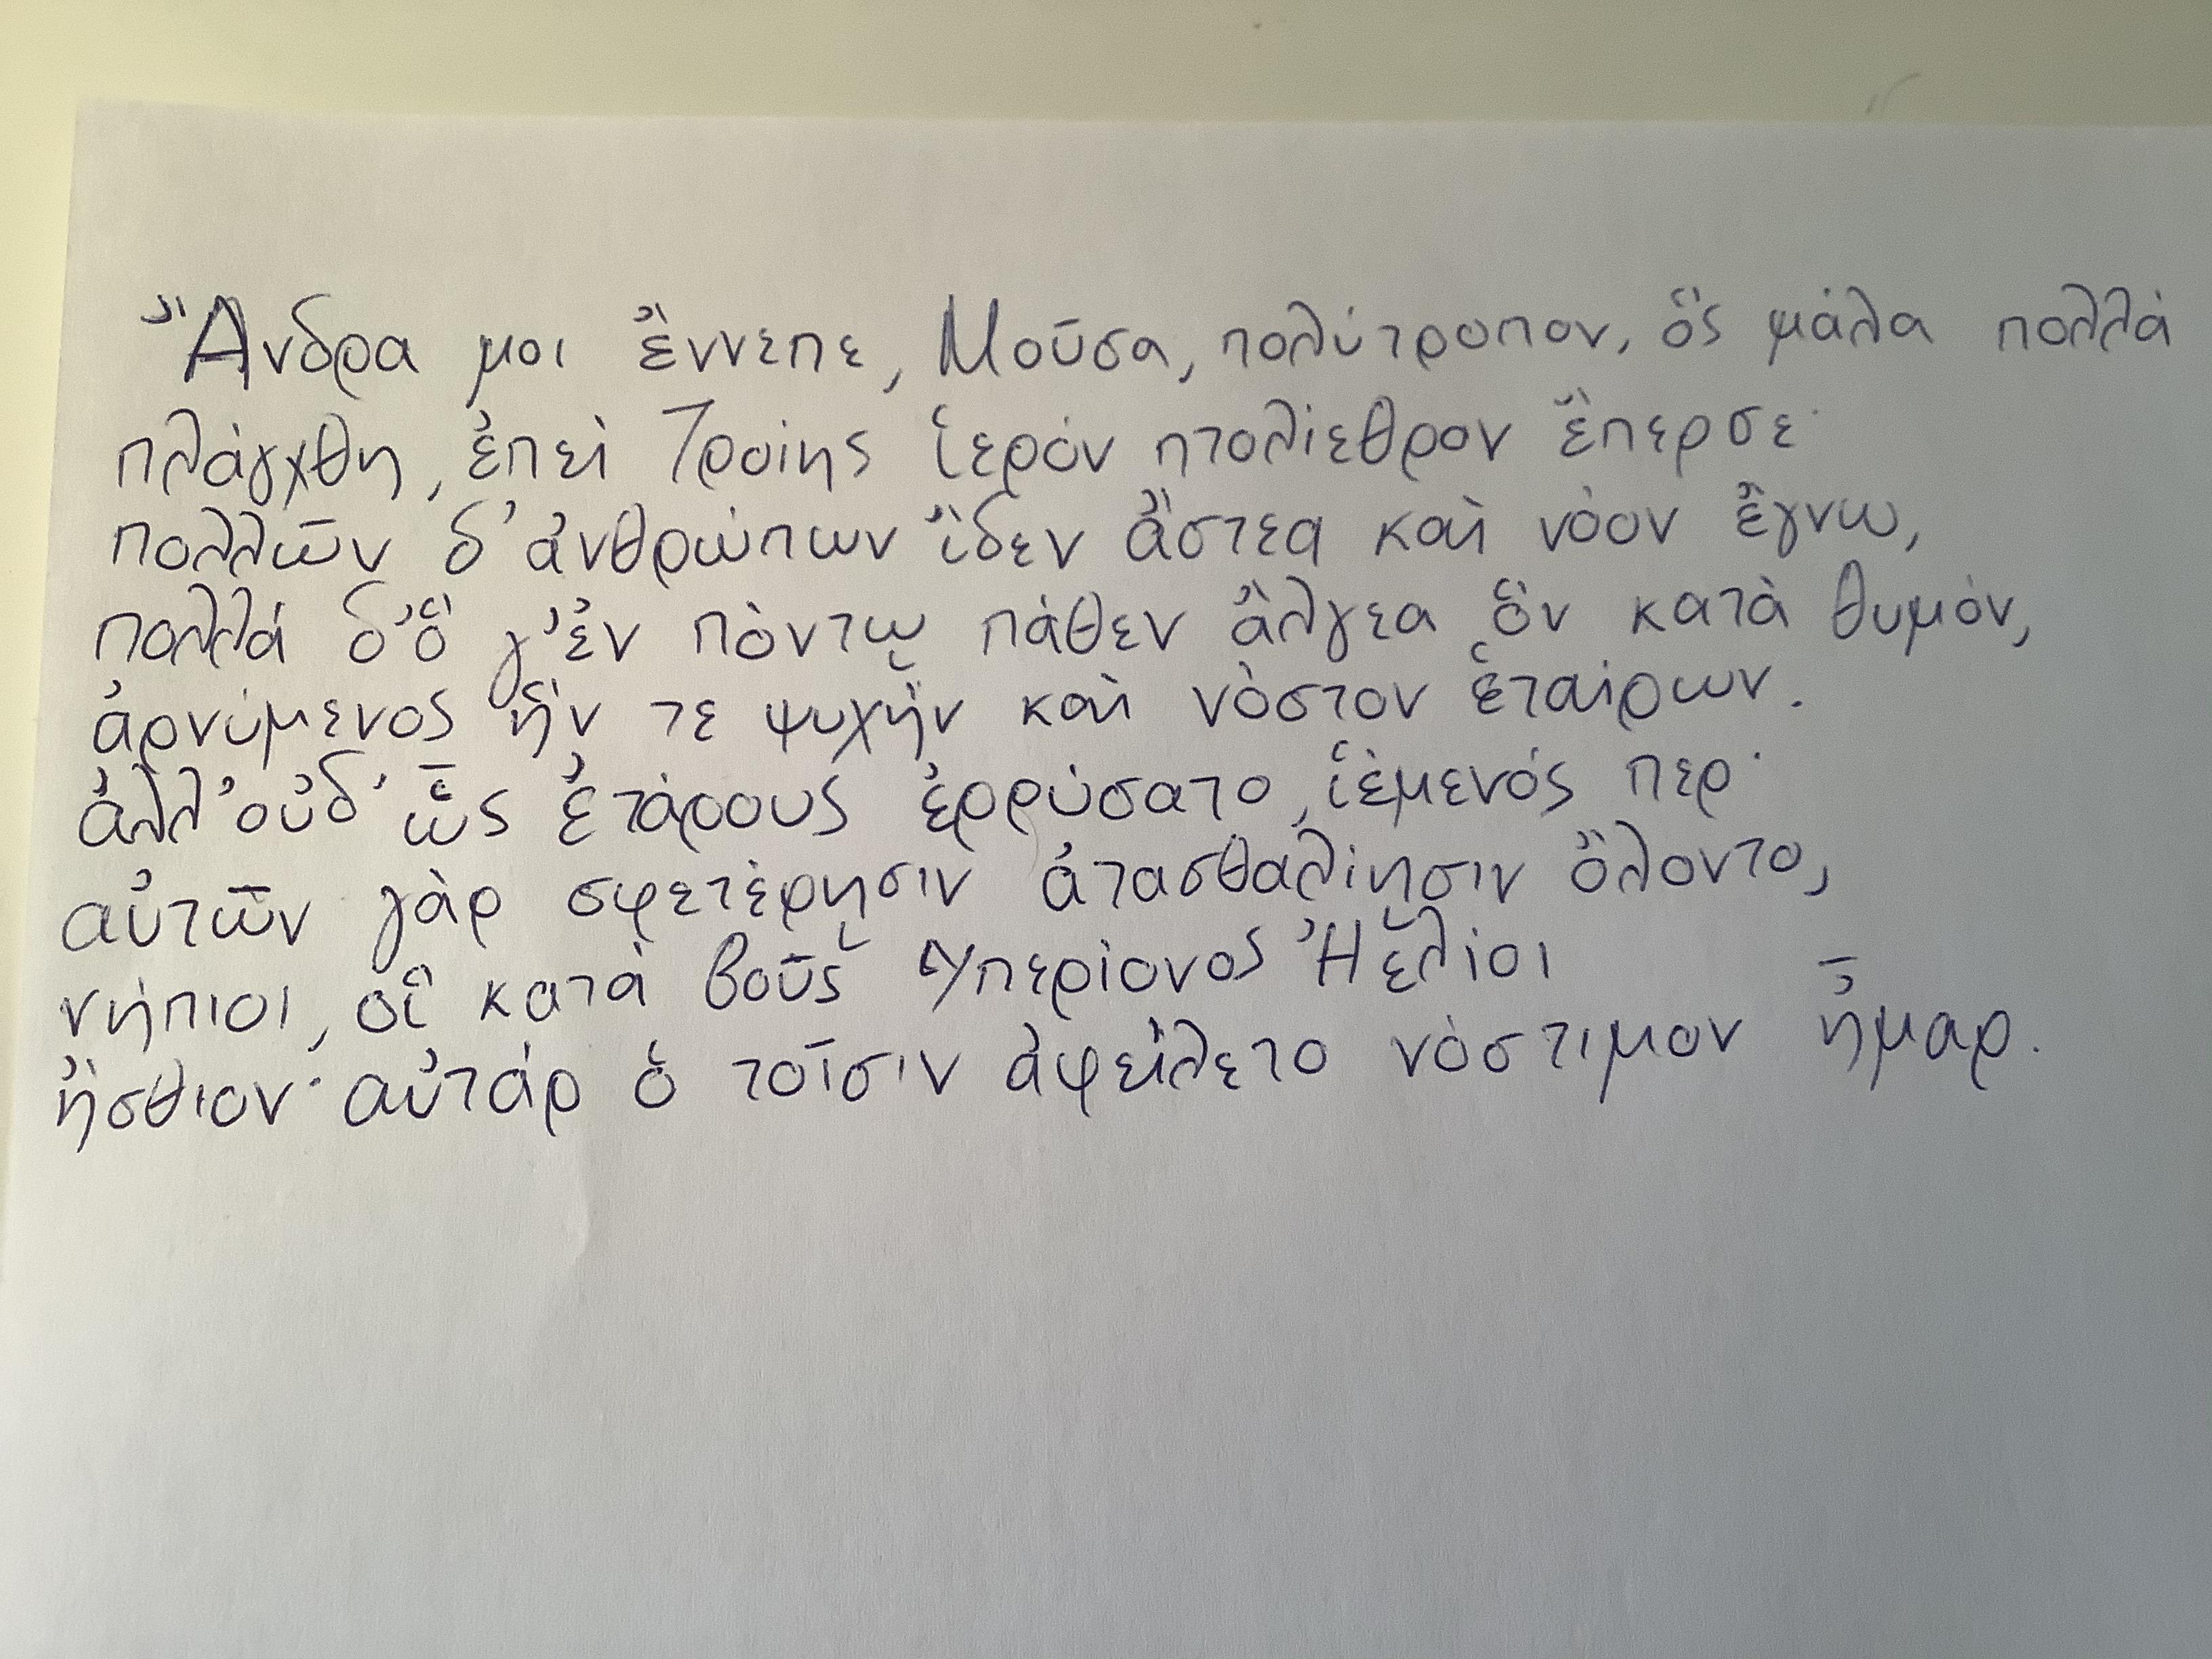 Ἄνδρα μοι ἔννεπε, Μοῦσα, πολύτροπον, ὃς μάλα πολλὰ
πλάγχθη, ἐπεὶ Τροίης ἱερόν πτολίεθρον ἔπερσε·
πολλῶν δ' ἀνθρώπων ἴδεν ἄστεα καὶ νόον ἔγνω,
πολλά δ' ὅ γ' ἐν πόντω πάθεν ἄλγεα ὃν κατὰ θυμόν,
ἀρνύμενος ἣν τε ψυχὴν καὶ νόστον ἑταίρων.
ἀλλ' οὐδ' ὧς ἑτάρους ἐρρύσατο, ἱέμενός περ·
αὐτῶν γὰρ σφετέρησιν ἀτασθαλίησιν ὄλοντο,
νήπιοι, οἳ κατὰ βοῦς Ὑπερίονος Ἠελίοι
ἤσθιον· αὐτὰρ ὁ τοῖσιν ἀφείλετο νόστιμον ἦμαρ.